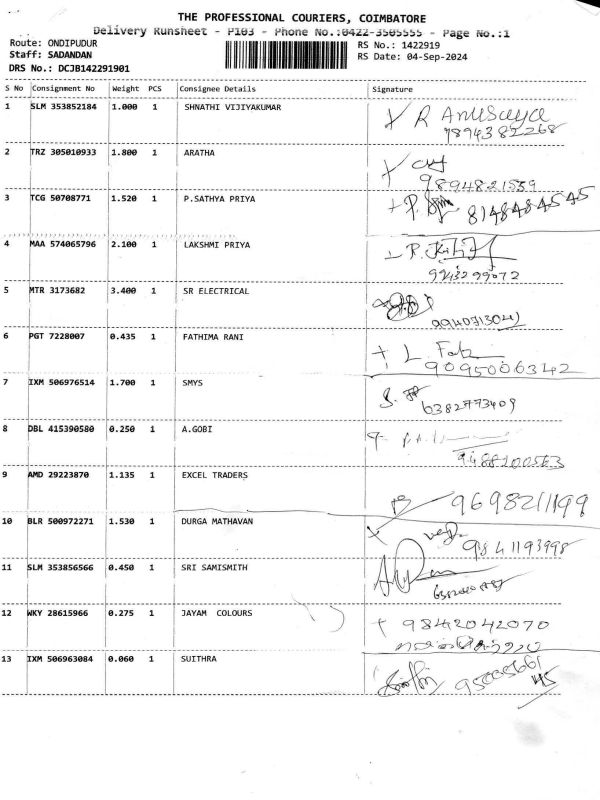 THE PROFESSIONAL COURIERS, COIMBATORE
Delivery Runsheet - P103 - Phone No.:0422-3505555 - Page No.:1
Route: ONDIPUDUR RS No.: 1422919
Staff: SADANDAN RS Date: 04-Sep-2024
DRS No.: DCJB142291901
S No Consignment No Weight PCS Consignee Details Signature
1 SLM 353852184 1.000 1 SHNATHI VIJIYAKUMAR R Anusaya
7894382268
2 TRZ 305010933 1.800 1 ARATHA
9894821559
3 TCG 50708771 1.520 1 P.SATHYA PRIYA 8148484545
4 MAA 574065796 2.100 1 LAKSHMI PRIYA
9243299072
5 MTR 3173682 3.400 1 SR ELECTRICAL
9940313041
6 PGT 7228007 0.435 1 FATHIMA RANI
9095006342
7 IXM 506976514 1.700 1 SMYS
6382773409
8 DBL 415390580 0.250 1 A.GOBI
9488200563
9 AMD 29223870 1.135 1 EXCEL TRADERS
9698211199
10 BLR 500972271 1.530 1 DURGA MATHAVAN
9841193998
11 SLM 353856566 0.450 1 SRI SAMISMITH
12 WKY 28615966 0.275 1 JAYAM COLOURS 9842042070
13 IXM 506963084 0.060 1 SUITHRA
45